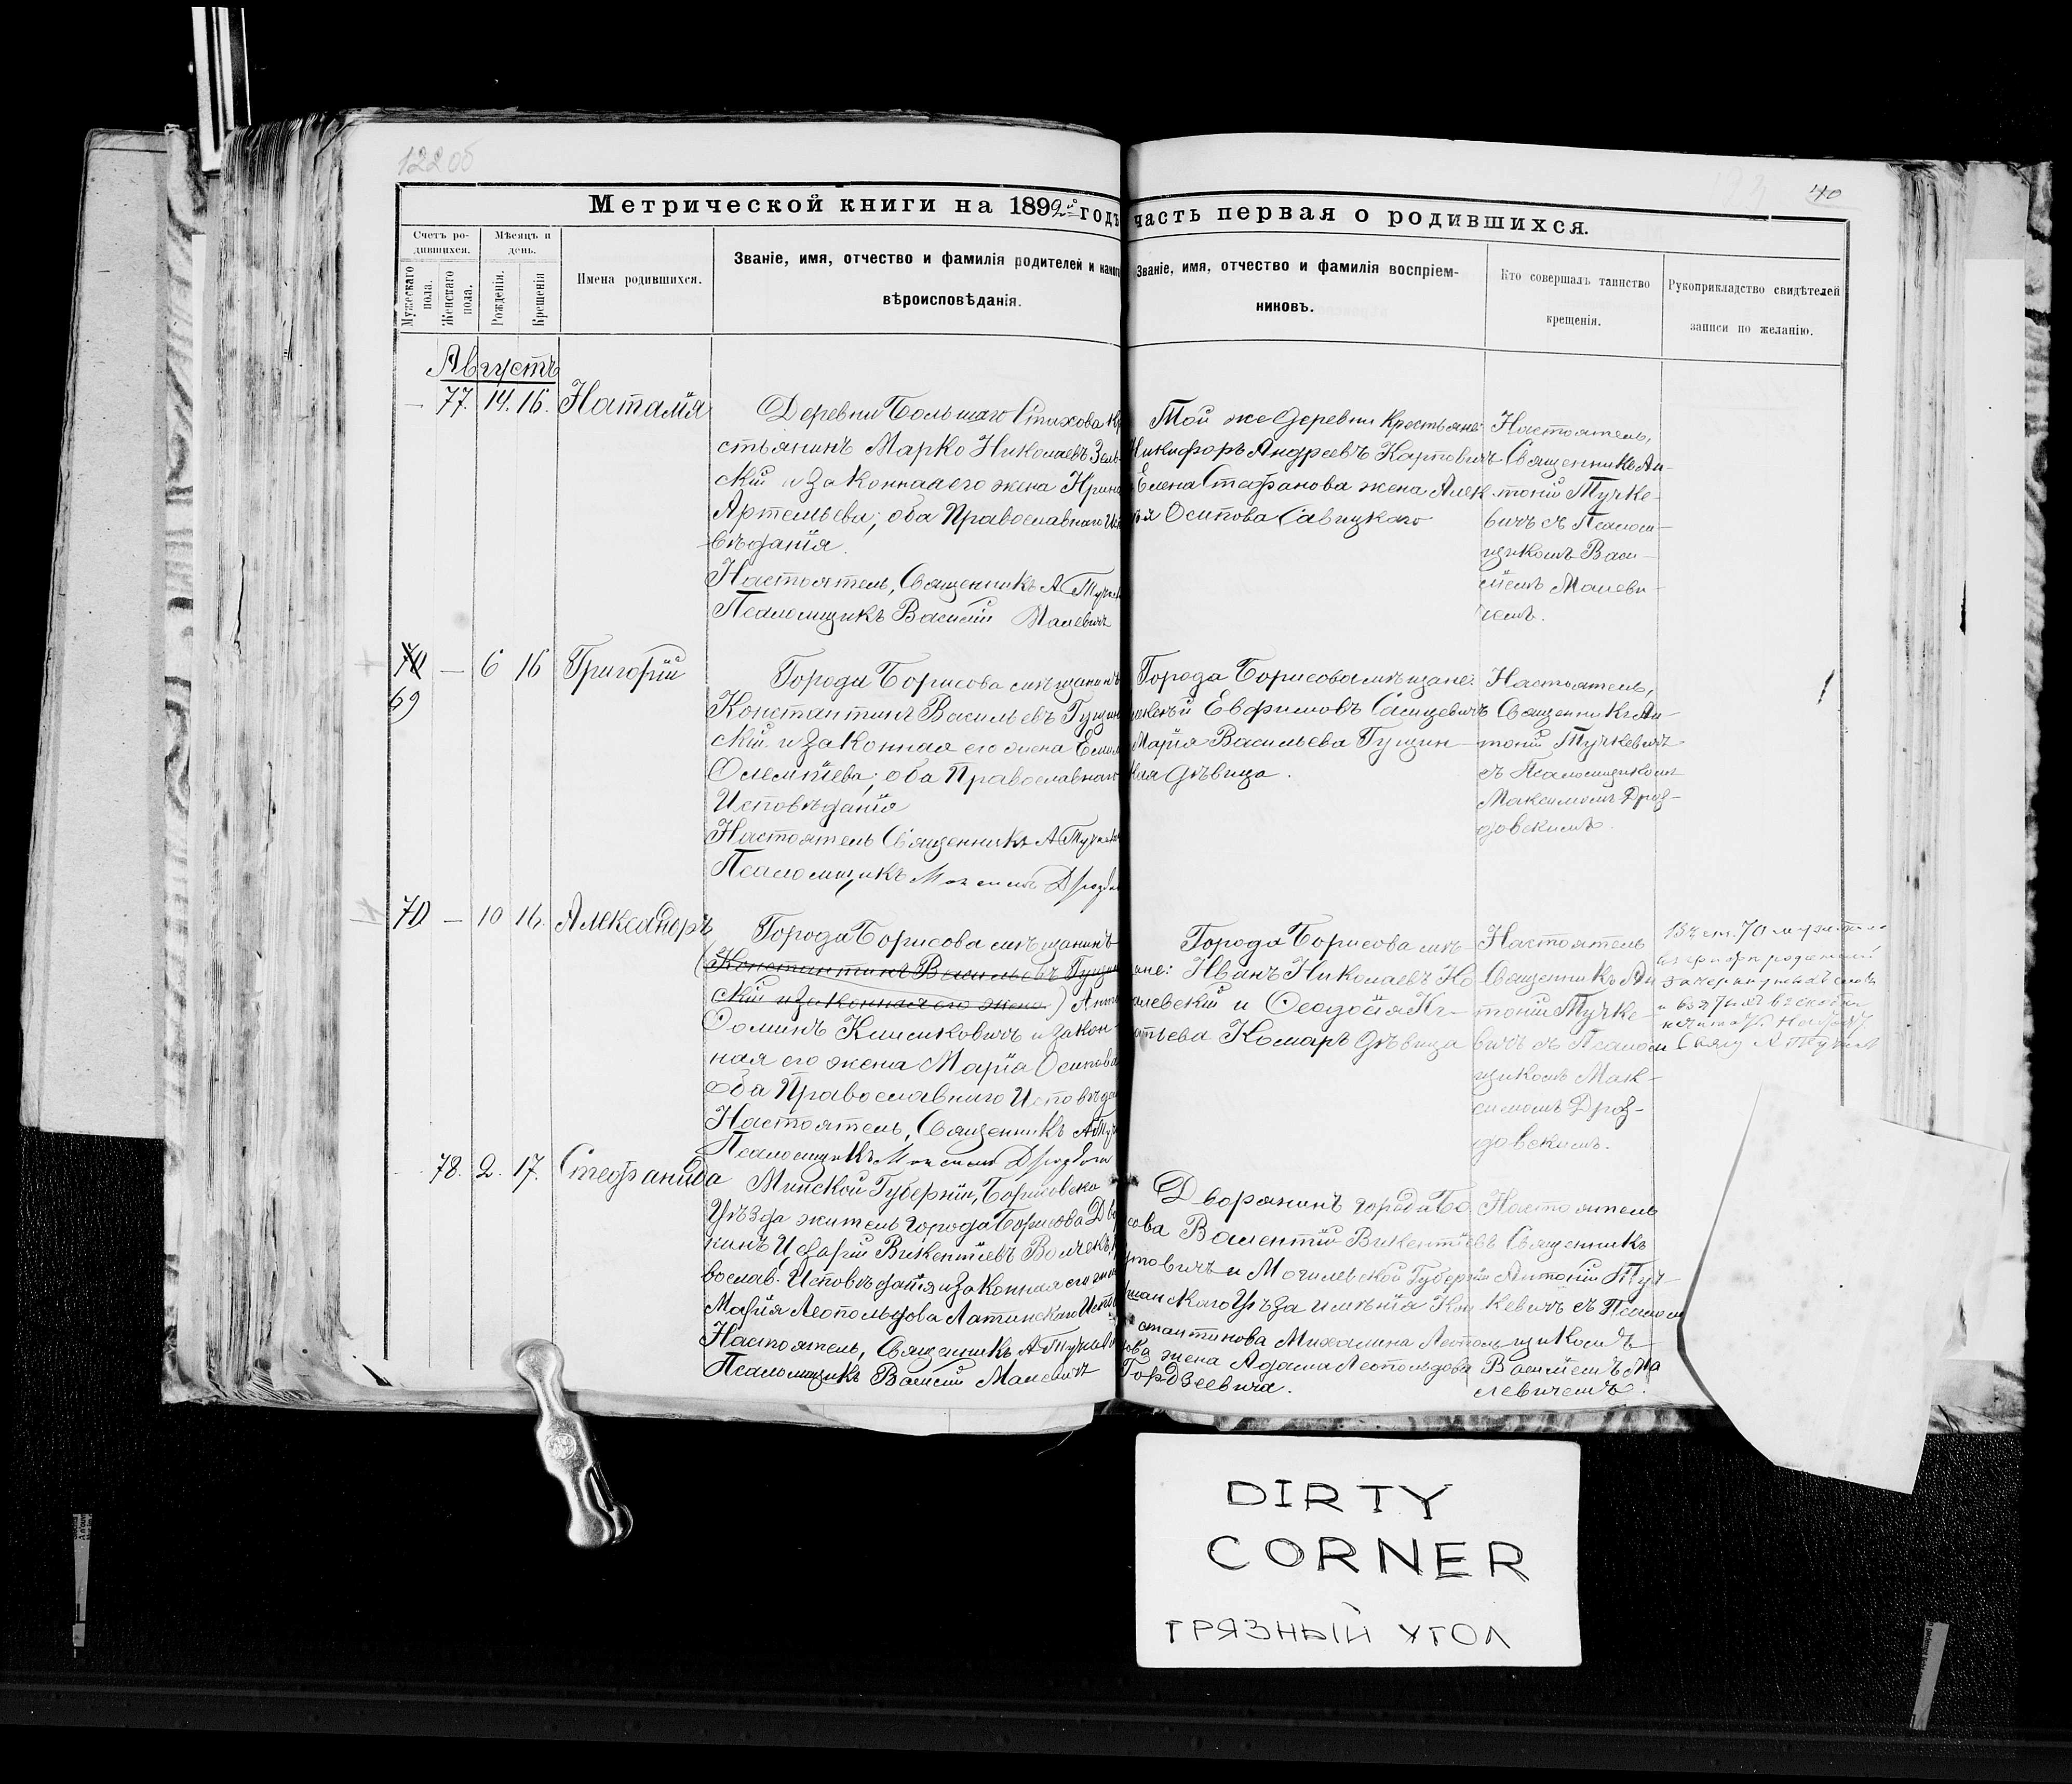 122 об
40
Метрической книги на 1892й годъ часть первая о родившихся.
Счетъ родившихся.
Мужескаго пола.
Женскаго пола.
Мѣсяцъ и день.
Рожденія.
Крещенія
Имена родившихся.
Званіе, имя, отчество и фамилія родителей и какого
вѣроисповѣданія.
Званіе, имя, отчество и фамилія воспріем-
никовъ.
Кто совершалъ таинство
крещенія.
Рукоприкладство свидѣтелей
записи по желанію.
Августъ
— 77. 14. 16. Наталія
Деревни Большаго Стахова кр
стьянинъ Марко Николаевъ Зель
скій и законная его жена Ирина
Артемьева; оба Православнаго Ис
вѣданія.
Настоятель, Священникъ А Тучке
Псаломщикъ Василій Малевичъ
Той же деревни крестьяне:
Никифоръ Андреевъ Карповичъ
Елена Стафанова жена Алек
Осипова Савицкаго
Настоятель,
Священникъ Ан-
тоній Тучке-
вичъ съ Псалом-
щикомъ Васи-
ліемъ Малеви-
чемъ.
69 — 6 16 Григорій
Города Борисова мѣщанинъ
Константинъ Васильевъ Гущин
скій и законная его жена
оба Православнаго
Исповѣданія
Настоятель Священникъ А Тучке
Псаломщикъ Максимъ Дрозд
Города Борисова мѣщане:
Евфимовъ
Марія Васильева Гущин-
кая дѣвица.
Настоятель,
Священникъ Ан-
тоній Тучкевичъ
съ Псаломщикомъ
Максимомъ Дроз-
довскимъ.
70 — 10 16. Александръ
Города Борисова мѣщанинъ
(Константинъ Васильевъ Гущин
скій и законная его жена) Анто
Ѳоминъ Климковичъ и закон-
ная его жена Марія Осипова
оба Православнаго Исповѣда
Настоятель, Священникъ А Туч
Псаломщикъ Максимъ Дроздов
Города Борисова мѣ-
ане: Иванъ Николаевъ Ко
алевскій и Ѳеодосія Иг-
атьева Комаръ дѣвица
Настоятель
Священникъ Ан
тоній Тучке-
вичъ съ Псалом
щикомъ Мак-
симомъ Дроз-
довскимъ.
— 78. 2. 17. Стефанида
Минской Губерніи, Борисовско
Уѣзда житель города Борисова Дво
нинъ Викентіевъ
вослав. Исповѣданія и законная его жен
Марія Леопольдова Латинскаго Испо
Настоятель, Священникъ А Тучкев
Псаломщикъ Василій Малевичъ
Дворянинъ города Бо
сова Валентій Викентіевъ
и Могилевской Губерніи
Уѣзда имѣнія
стантинова Михалина Леополь
ова жена Адама Леопольдова
Гордзеевича.
Настоятель
Священникъ
Антоній Туч-
кевичъ съ Псалом
щикомъ
Василіемъ Ма
левичемъ.
DIRTY
CORNER
ГРЯЗНЫЙ УГОЛ